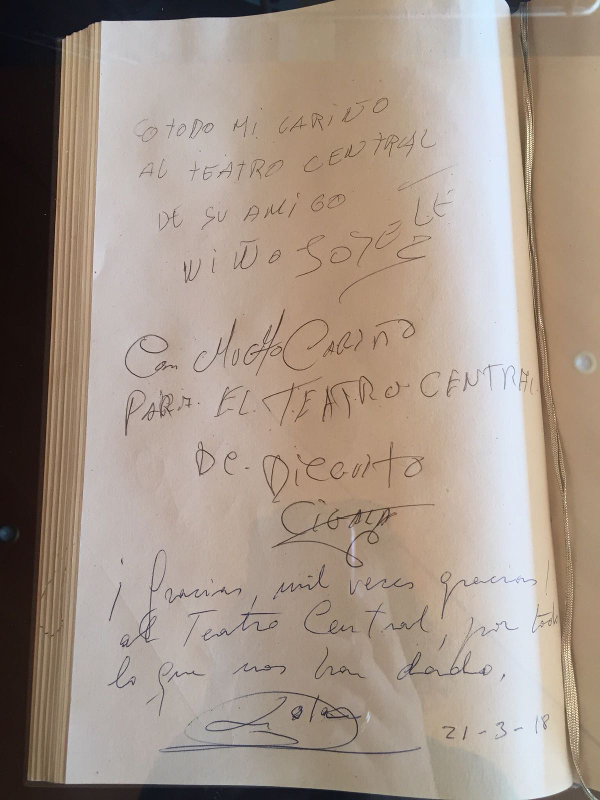 CO TODO MI CARIÑO
AL TEATRO CENTRAL
DE SU AMIGO
NIÑO JOSELE
Con MUCHO CARIÑO
PARA EL TEATRO CENTRAL
De. DIEGUITO
CIGALA
¡Gracias, mil veces gracias!
al Teatro Central, por todo
lo que nos han dado.
Lola
21-3-18